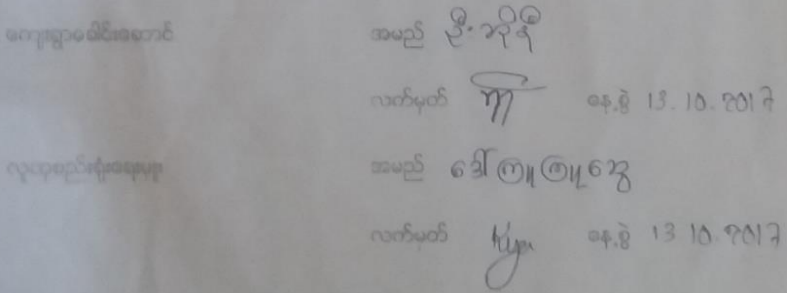 ကျေးရွာခေါင်းဆောင် အမည် ဦးဘိုနီ
လက်မှတ် နေ့စွဲ 13.10.2017
လူထုစည်းရုံးရေးမှူး အမည် ဒေါ်ကြူကြူဆွေ
လက်မှတ် Kyu နေ့စွဲ 13 10.2017